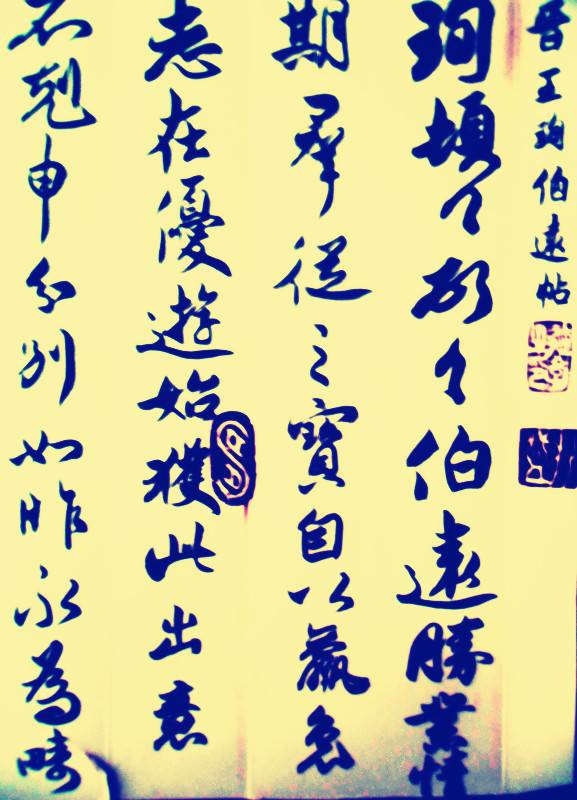 晉王珣伯遠帖
珣頓々首々伯遠勝業情
期羣從之寶自以羸患
志在優遊始獲此出意
不剋申分別如昨永為疇